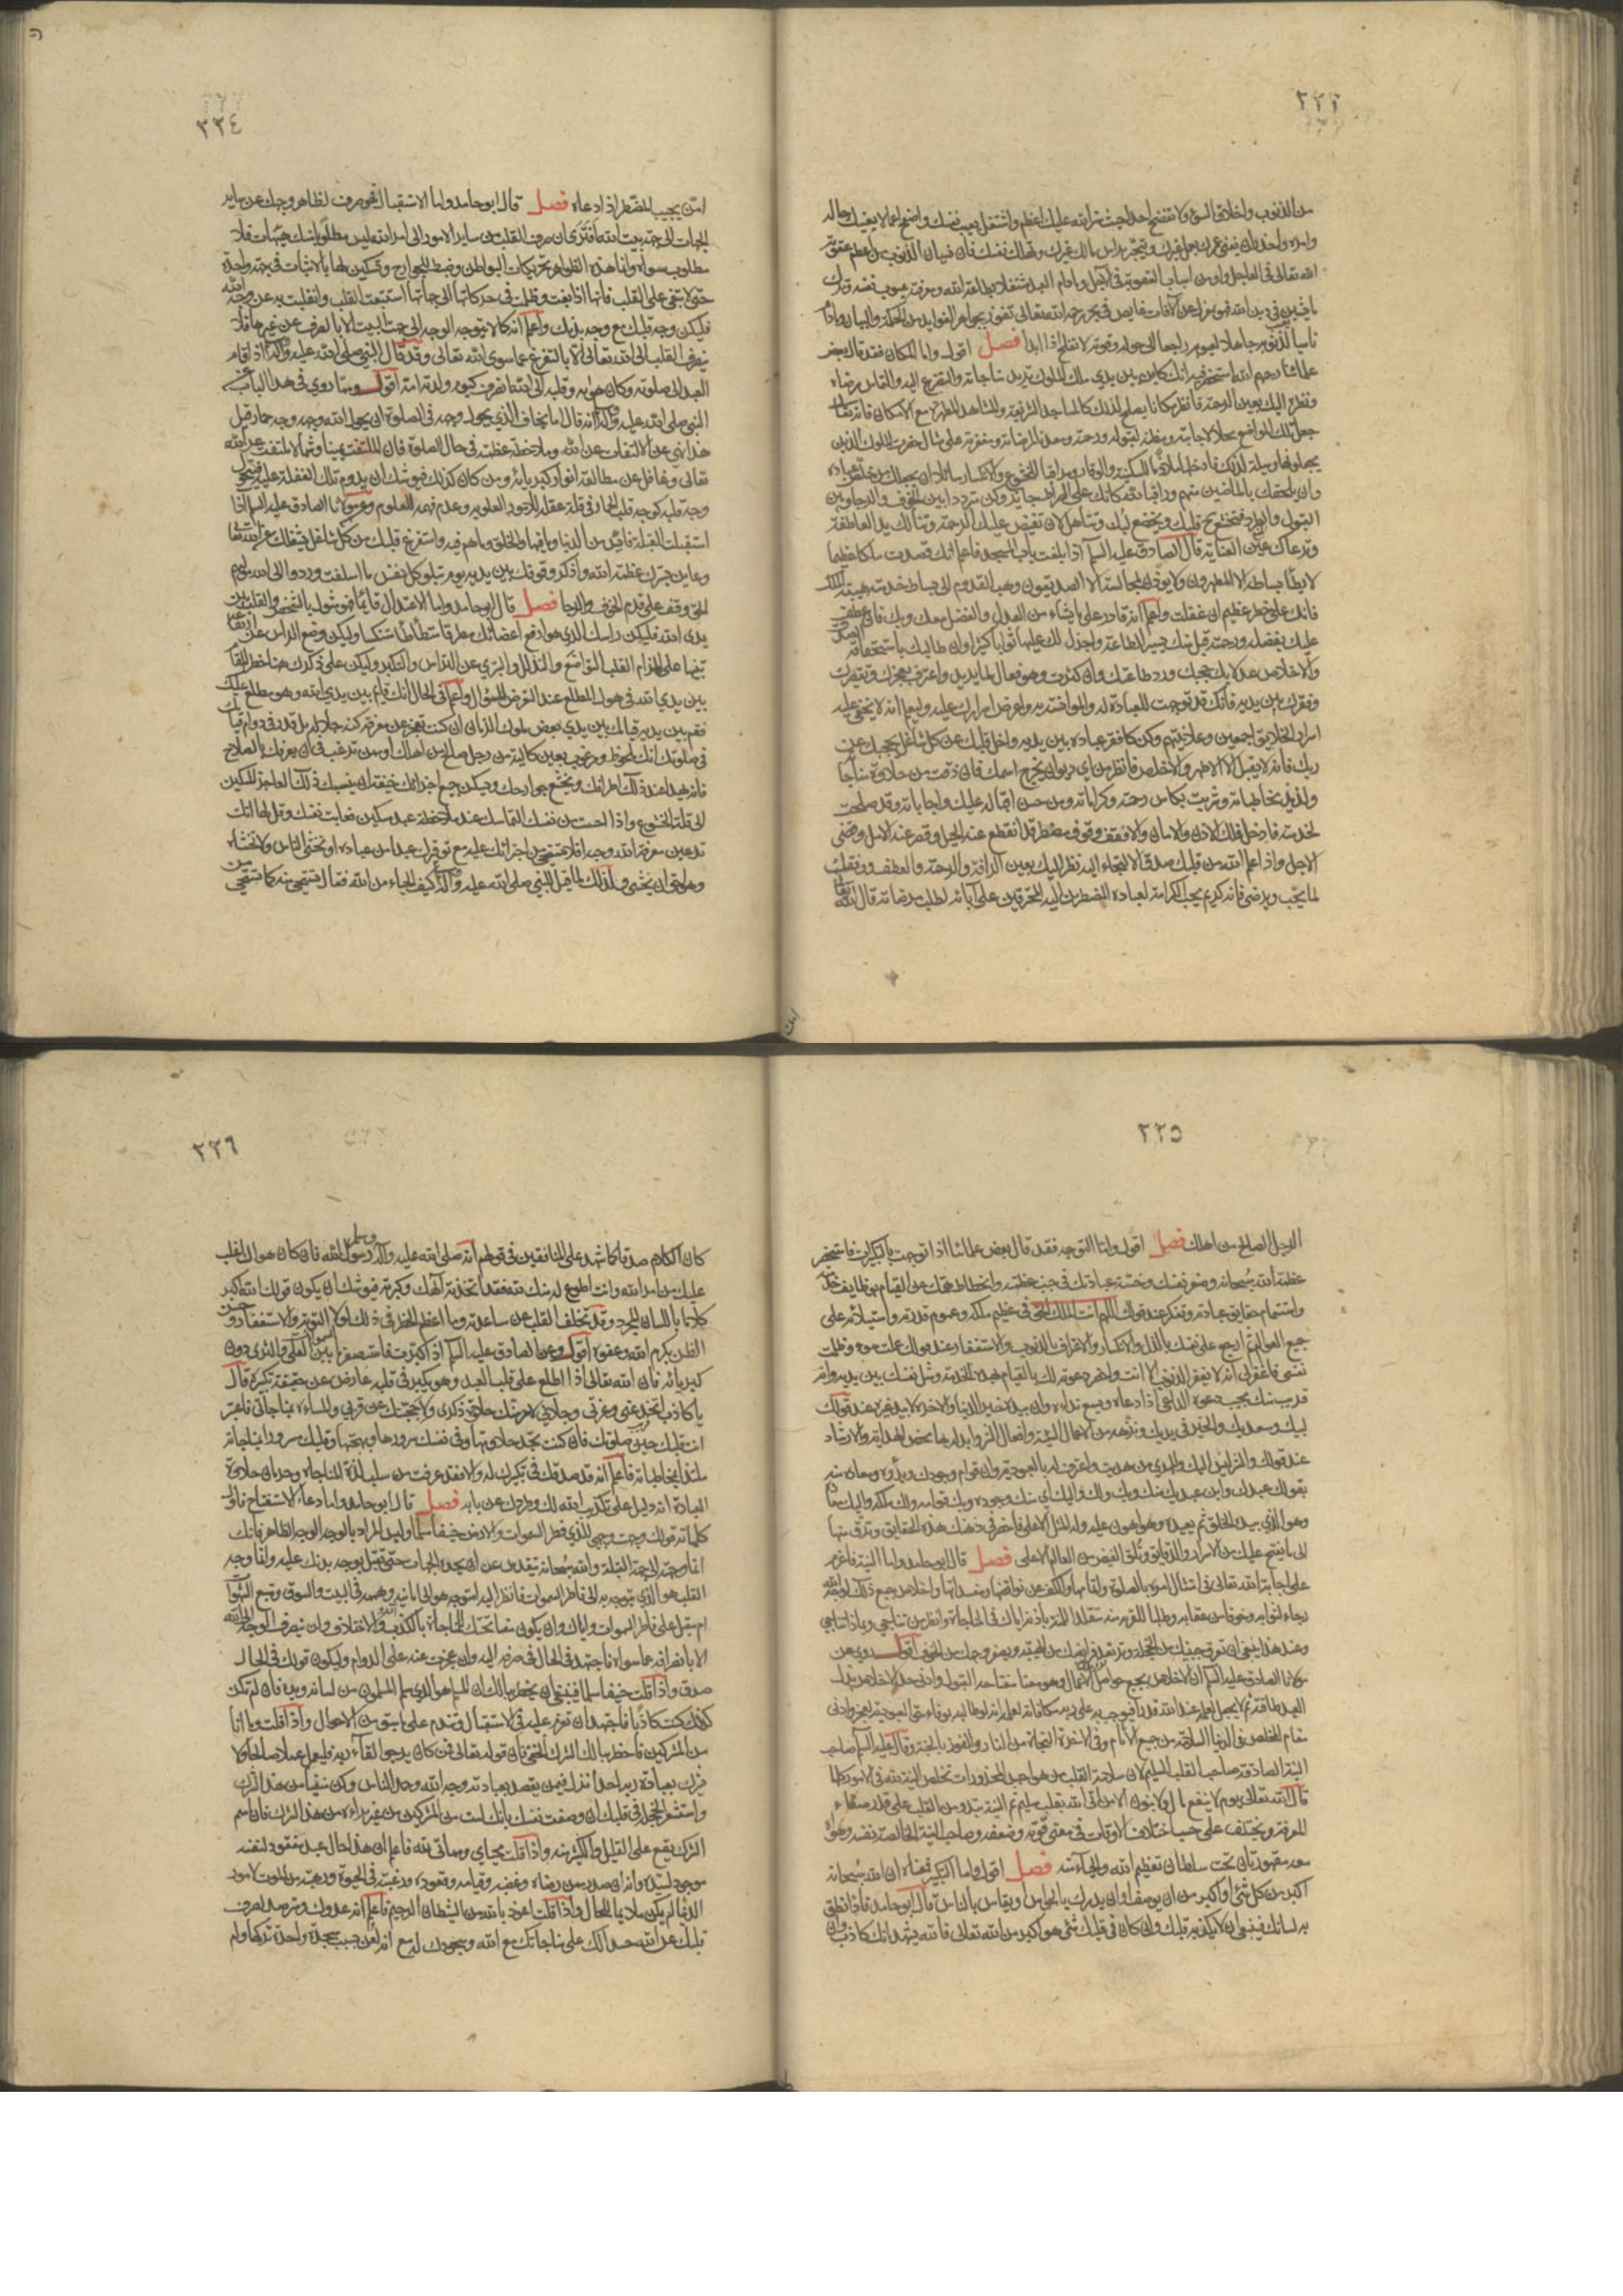 ٢٢٣
من الذنوب واخلاق السوء ولا تفضح احدا حيث ستر الله عليك اعظم واشتغل بعيب نفسك واصفح عما لا يعنيك حاله
وامره واحذر ان يفنى عمرك بعمل غيرك ويتجر براس مالك غيرك وتهلك نفسك فان نسيان الذنوب من اعظم عقوبة
الله تعالى في العاجل واوفر اسباب العقوبة في الآجل وما دام العبد مشتغلا بطاعة الله ومعرفة عيوب نفسه وترك
ما يشين في دين الله فهو بمعزل عن الآفات خايض في بحر رحمة الله تعالى يفوز بجواهر الفوايد من الحكمة والبيان وما دام
ناسيا لذنوبه جاهلا لعيوبه راجعا الى حوله وقوته لا يفلح اذا ابدا فصل اقول واما المكان فقد قال بعض
علمائنا رحمهم الله استحضر فيه انك كاين بين يدي ملك الملوك تريد مناجاته والتضرع اليه والتماس رضاه
ونظره اليك بعين الرحمة فانظر مكانا يصلح لذلك كالمساجد الشريفة والمشاهد المطهرة مع الامكان فانه تعالى
جعل تلك المواضع محلا لاجابته ومظنة لقبوله ورحمته ومعدن لمرضاته ومغفرته على مثال حضرة الملوك الذين
يجعلونها وسيلة لذلك فادخلها ملازما للسكينة والوقار ومراقبا للخشوع والانكسار سائلا ان يجعلك من خاص عباده
وان يلحقك بالماضين منهم وراقب الله كانك على الصراط جايز وكن مترددا بين الخوف والرجاء وبين
القبول والطرد فيخشع حينئذ قلبك ويخضع لبك وتتاهل لان تفيض عليك الرحمة وتنالك يد العاطفة
وترعاك عين العناية قال الصادق عليه السلام اذا بلغت باب المسجد فاعلم انك قصدت ملكا عظيما
لا يطأ بساطه الا المطهرون ولا يؤذن لمجالسته الا الصديقون وهب القدوم الى بساط خدمته هيبة الملك
فانك على خطر عظيم ان غفلت واعلم انه قادر على ما يشاء من العدل والفضل معك وبك فان عطف
عليك بفضله ورحمته قبل منك يسير الطاعة واجزل لك عليها ثوابا كثيرا وان طالبك باستحقاقه الصدق
والاخلاص عدلا بك حجبك ورد طاعتك وان كثرت وهو فعال لما يريد واعترف بعجزك وتقصيرك
وفقرك بين يديه فانك قد توجهت للعبادة له والمؤانسة به واعرض اسرارك عليه وليعلم انه لا يخفى عليه
اسرار الخلايق اجمعين وعلانيتهم وكن كافقر عباده بين يديه واخل قلبك عن كل شاغل يحجبك عن
ربك فانه لا يقبل الا الاطهر والاخلص فانظر من اي ديوان يخرج اسمك فان ذقت من حلاوة مناجاته
ولذيذ مخاطباته وشربت بكاس رحمته وكراماته من حسن اقباله عليك واجاباته وقد صلحت
لخدمته فادخل فلك الاذن والامان والا فقف وقوف مضطر قد انقطع عنه الحيل وقصر عنه الامل وقضى
الاجل واذا علم الله من قلبك صدق الالتجاء اليه نظر اليك بعين الرافة والرحمة والعطف ووفقك
لما يحب ويرضى فانه كريم يحب الكرامة لعباده المضطرين اليه المحترقين على بابه لطلب مرضاته قال الله تعالى
امن
٢٢٤
امن يجيب المضطر اذا دعاه فصل قال ابو حامد واما الاستقبال فهو صرف لظاهر وجهك عن ساير
الجهات الى جهة بيت الله افترى ان صرف القلب من ساير الامور الى امر الله ليس مطلوبا منك هيهات فلا
مطلوب سواه وانما هذه الظواهر تحريكات البواطن وضبط للجوارح وتسكين لها بالاثبات في جهة واحدة
حتى لا تبغي على القلب فانها اذا بغت وظلمت في حركاتها الى جهاتها استتبعت القلب وانقلبت به عن وجه الله
فليكن وجه قلبك مع وجه بدنك واعلم انه كما لا يتوجه الوجه الى جهة البيت الا بالصرف عن غيرها فلا
ينصرف القلب الى الله تعالى الا بالتفرغ عما سوى الله تعالى وقد قال النبي صلى الله عليه وآله اذا قام
العبد الى صلوته وكان هواه وقلبه الى الله انصرف كيوم ولدته امه اقول ومما روي في هذا الباب عن
النبي صلى الله عليه وآله انه قال اما يخاف الذي يحول وجهه في الصلوة ان يحول الله وجهه وجه حمار قيل
هذا نهي عن الالتفات عن الله وملاحظة عظمته في حال الصلوة فان الملتفت يمينا وشمالا ملتفت عن الله
تعالى وغافل عن مطالعة انوار كبريائه ومن كان كذلك فيوشك ان يدوم تلك الغفلة عليه فيتحول
وجه قلبه كوجه قلب الحمار في قلة عقله للامور العلوية وعدم فهمه للعلوم وعن مولانا الصادق عليه السلام اذا
استقبلت القبلة فايس من الدنيا وما فيها والخلق وما هم فيه واستفرغ قلبك من كل شاغل يشغلك عن الله تعالى
وعاين بسرك عظمة الله واذكر وقوفك بين يديه يوم تبلو كل نفس ما اسلفت وردوا الى الله مولهم
الحق وقف على قدم الخوف والرجا فصل قال ابو حامد واما الاعتدال قائما فهو مثول بالشخص والقلب بين
يدي الله فليكن راسك الذي هو ارفع اعضائك مطرقا مستطأطأ متنكسا وليكن وضع الراس عن ارتفاعه
تنبيها على الزام القلب التواضع والتذلل والتبري عن التراس والتكبر وليكن على ذكرك ههنا خطر المقام
بين يدي الله في هول المطلع عند التعرض للسؤال واعلم في الحال انك قايم بين يدي الله وهو مطلع عليك
فقم بين يديه قيامك بين يدي بعض ملوك الزمان ان كنت تعجز عن معرفة كنه جلاله بل قدر في دوام قيامك
في صلوتك انك ملحوظ ومرقوب بعين كالئة من رجل صالح من اهلك او ممن ترغب في ان يعرفك بالصلاح
فانه تهدأ عند ذلك اطرافك وتخشع جوارحك ويسكن جميع اجزائك خيفة ان ينسبك ذلك العاجز المسكين
الى قلة الخشوع واذا احسست من نفسك التماسك عند ملاحظة عبد مسكين فعاتب نفسك وقل لها انك
تدعين معرفة الله وحبه افلا تستحيين من اجترائك عليه مع توقيرك عبدا من عباده او تخشى الناس ولا تخشاه
وهو احق ان يخشى ولذلك لما قيل للنبي صلى الله عليه وآله كيف الحياء من الله فقال تستحيي منه كما تستحيي من
٢٢٥
الرجل الصالح من اهلك فصل اقول واما التوجه فقد قال بعض علمائنا اذا توجهت بالتكبيرات فاستحضر
عظمة الله سبحانه وصغر نفسك وخسة عبادتك في جنب عظمته وانحطاط همتك عن القيام بوظايف خدمته
واستتمام حقايق عبادته وتفكر عند قولك اللهم انت الملك الحق في عظيم ملكه وعموم قدرته واستيلائه على
جميع العوالم ثم ارجع على نفسك بالذل والانكسار والاعتراف بالذنوب والاستغفار وعند قولك عملت سوء وظلمت
نفسي فاغفر لي انه لا يغفر الذنوب الا انت واحضر دعوته لك بالقيام بهذه الخدمة ومثل نفسك بين يديه وانه
قريب منك يجيب دعوة الداعي اذا دعاه ويسمع نداءه وان بيده خير الدنيا والاخرة لا بيد غيره عند قولك
لبيك وسعديك والخير في يديك ونزهه من الاعمال السيئة وافعال الشر وابدله بها محض الهداية والارشاد
عند قولك والشر ليس اليك والمهدي من هديت واعترف له بالعبودية وان قوام وجودك وبدؤه ومعاده منه
بقولك عبدك وابن عبديك منك وبك ولك واليك اي منك وجوده وبك قوامه ولك ملكه واليك معاده
وهو الذي يبدء الخلق ثم يعيده وهو اهون عليه وله المثل الاعلى فاحضر في ذهنك هذه الحقايق وترق منها
الى ما يفتح عليك من الاسرار والدقايق وتلق الفيض من العالم الاعلى فصل قال ابو حامد واما النية فاعزم
على اجابة الله تعالى في امتثال امره بالصلوة واتمامها والكف عن نواقضها ومفسداتها واخلاص جميع ذلك لوجه الله
رجاء لثوابه وخوفا من عقابه وطلبا للقربة منه متقلدا للمنة باذنه اياك في المناجاة وانظر من تناجي وبماذا تناجي
وعند هذا ينبغي ان تعرق جبينك من الخجلة وترتعد فرايصك من الهيبة ويصفر وجهك من الخوف اقول روى عن
مولانا الصادق عليه السلام ان الاخلاص يجمع حواصل الاعمال وهو معنى مفتاحه القبول وادنى حد الاخلاص بذل
العبد طاقته ثم لا يجعل لعمله عند الله قدرا فيوجب به على ربه مكافاته لعلمه انه لو طالبه بوفاء حق العبودية لعجز وادنى
مقام المخلص في الدنيا السلامة من جميع الآثام وفي الاخرة النجاة من النار والفوز بالجنة وقال عليه السلام صاحب
النية الصادقة صاحب القلب السليم لان سلامة القلب من هواجس المحذورات تخلص النية لله في الامور كلها
قال الله تعالى يوم لا ينفع مال ولا بنون الا من اتى الله بقلب سليم ثم النية تبدو من القلب على قدر صفاء
المعرفة وتختلف على حسب اختلاف الاوقات في معنى قوته وضعفه وصاحب النية الخالصة نفسه وهواه
معه مقهورتان تحت سلطان تعظيم الله والحياء منه فصل اقول واما التكبير فمعناه ان الله سبحانه
اكبر من كل شئ او اكبر من ان يوصف او ان يدرك بالحواس او يقاس بالناس قال ابو حامد فاذا نطق
به لسانك فينبغي ان لا يكذبه قلبك وان كان في قلبك شئ هو اكبر من الله تعالى فالله يشهد انك كاذب وان
٢٢٦
كان الكلام صدقا كما شهد على المنافقين في قولهم انه صلى الله عليه وآله وسلم رسول الله فان كان هواك اغلب
عليك من امر الله وانت اطوع له منك لله فقد اتخذته الهك وكبرته فيوشك ان يكون قولك الله اكبر
كلاما باللسان المجرد وقد تخلف القلب عن مساعدته وما اعظم الخطر في ذلك لولا التوبة والاستغفار وحسن
الظن بكرم الله وعفوه اقول وعن الصادق عليه السلام اذا كبرت فاستصغر ما بين السموات العلى والثرى دون
كبريائه فان الله تعالى اذا اطلع على قلب العبد وهو يكبر في قلبه عارض عن حقيقة تكبيره قال
يا كاذب اتخدعني وعزتي وجلالي لاحرمنك حلاوة ذكري ولاحجبنك عن قربي والمسارة بمناجاتي فاعتبر
انت قلبك حين صلوتك فان كنت تجد حلاوتها وفي نفسك سرورها وبهجتها وقلبك مسرورا بمناجاته
ملتذا بمخاطباته فاعلم انه قد صدقك في تكبيرك له والا فقد عرفت من سلب لذة المناجاة وحرمان حلاوة
العبادة انه دليل على تكذيب الله لك وطردك عن بابه فصل قال ابو حامد واما دعاء الاستفتاح فاول
كلماته قولك وجهت وجهي للذي فطر السموات والارض حنيفا مسلما وليس المراد بالوجه الوجه الظاهر فانك
انما وجهته الى جهة القبلة والله سبحانه يتقدس عن ان يحده الجهات حتى تقبل بوجه بدنك عليه وانما وجه
القلب هو الذي يتوجه به الى فاطر السموات فانظر اليه امتوجه هو الى امانيه وهمه في البيت والسوق ومتبع للشهوات
ام مقبل على فاطر السموات واياك وان يكون مفاتحتك للمناجاة بالكذب والاختلاق ولن ينصرف الوجه الى الله
الا بانصرافه عما سواه فاجتهد في الحال في صرفه اليه وان عجزت عنه على الدوام وليكون قولك في الحال
صدقا واذا قلت حنيفا مسلما فينبغي ان يخطر ببالك ان المسلم هو الذي سلم المسلمون من لسانه ويده فان لم تكن
كذلك كنت كاذبا فاجتهد ان تعزم عليه في الاستقبال وتندم على ما سبق من الاحوال واذا قلت وما انا
من المشركين فاخطر ببالك الشرك الخفي فان قوله تعالى فمن كان يرجو لقاء ربه فليعمل عملا صالحا ولا
يشرك بعبادة ربه احدا نزل فيمن يقصد بعبادته وجه الله وحمد الناس وكن منفيا من هذا الشرك
واستشعر الخجلة في قلبك ان وصفت نفسك بانك لست من المشركين من غير براءة من هذا الشرك فان اسم
الشرك يقع على القليل والكثير منه واذا قلت محياي ومماتي لله فاعلم ان هذا حال عبد مفقود لنفسه
موجود لسيده وانه ان صدر ممن رضاه وغضبه وقيامه وقعوده ورغبته في الحيوة ورهبته من الموت لامور
الدنيا لم يكن ملايما للحال واذا قلت اعوذ بالله من الشيطان الرجيم فاعلم انه عدوك ومترصد لصرف
قلبك عن الله حسدا لك على مناجاتك مع الله وسجودك له مع انه لعن بسبب سجدة واحدة تركها ولم